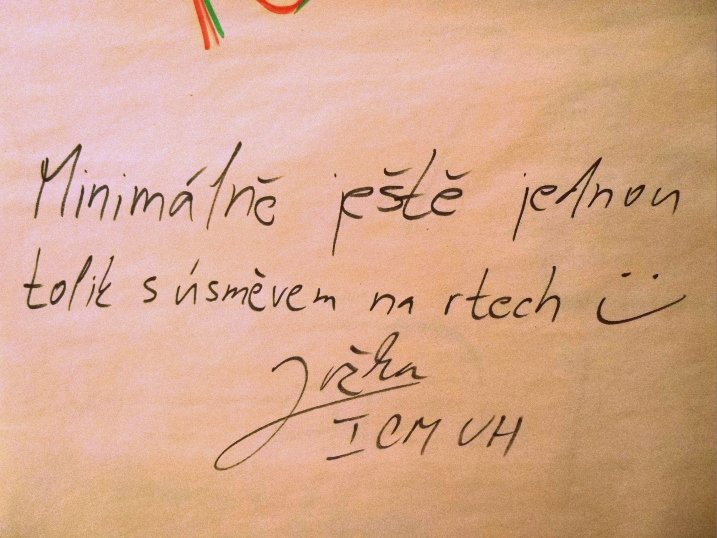 Minimálně ještě jednou
tolik s úsměvem na rtech
Jožka
ICM UH